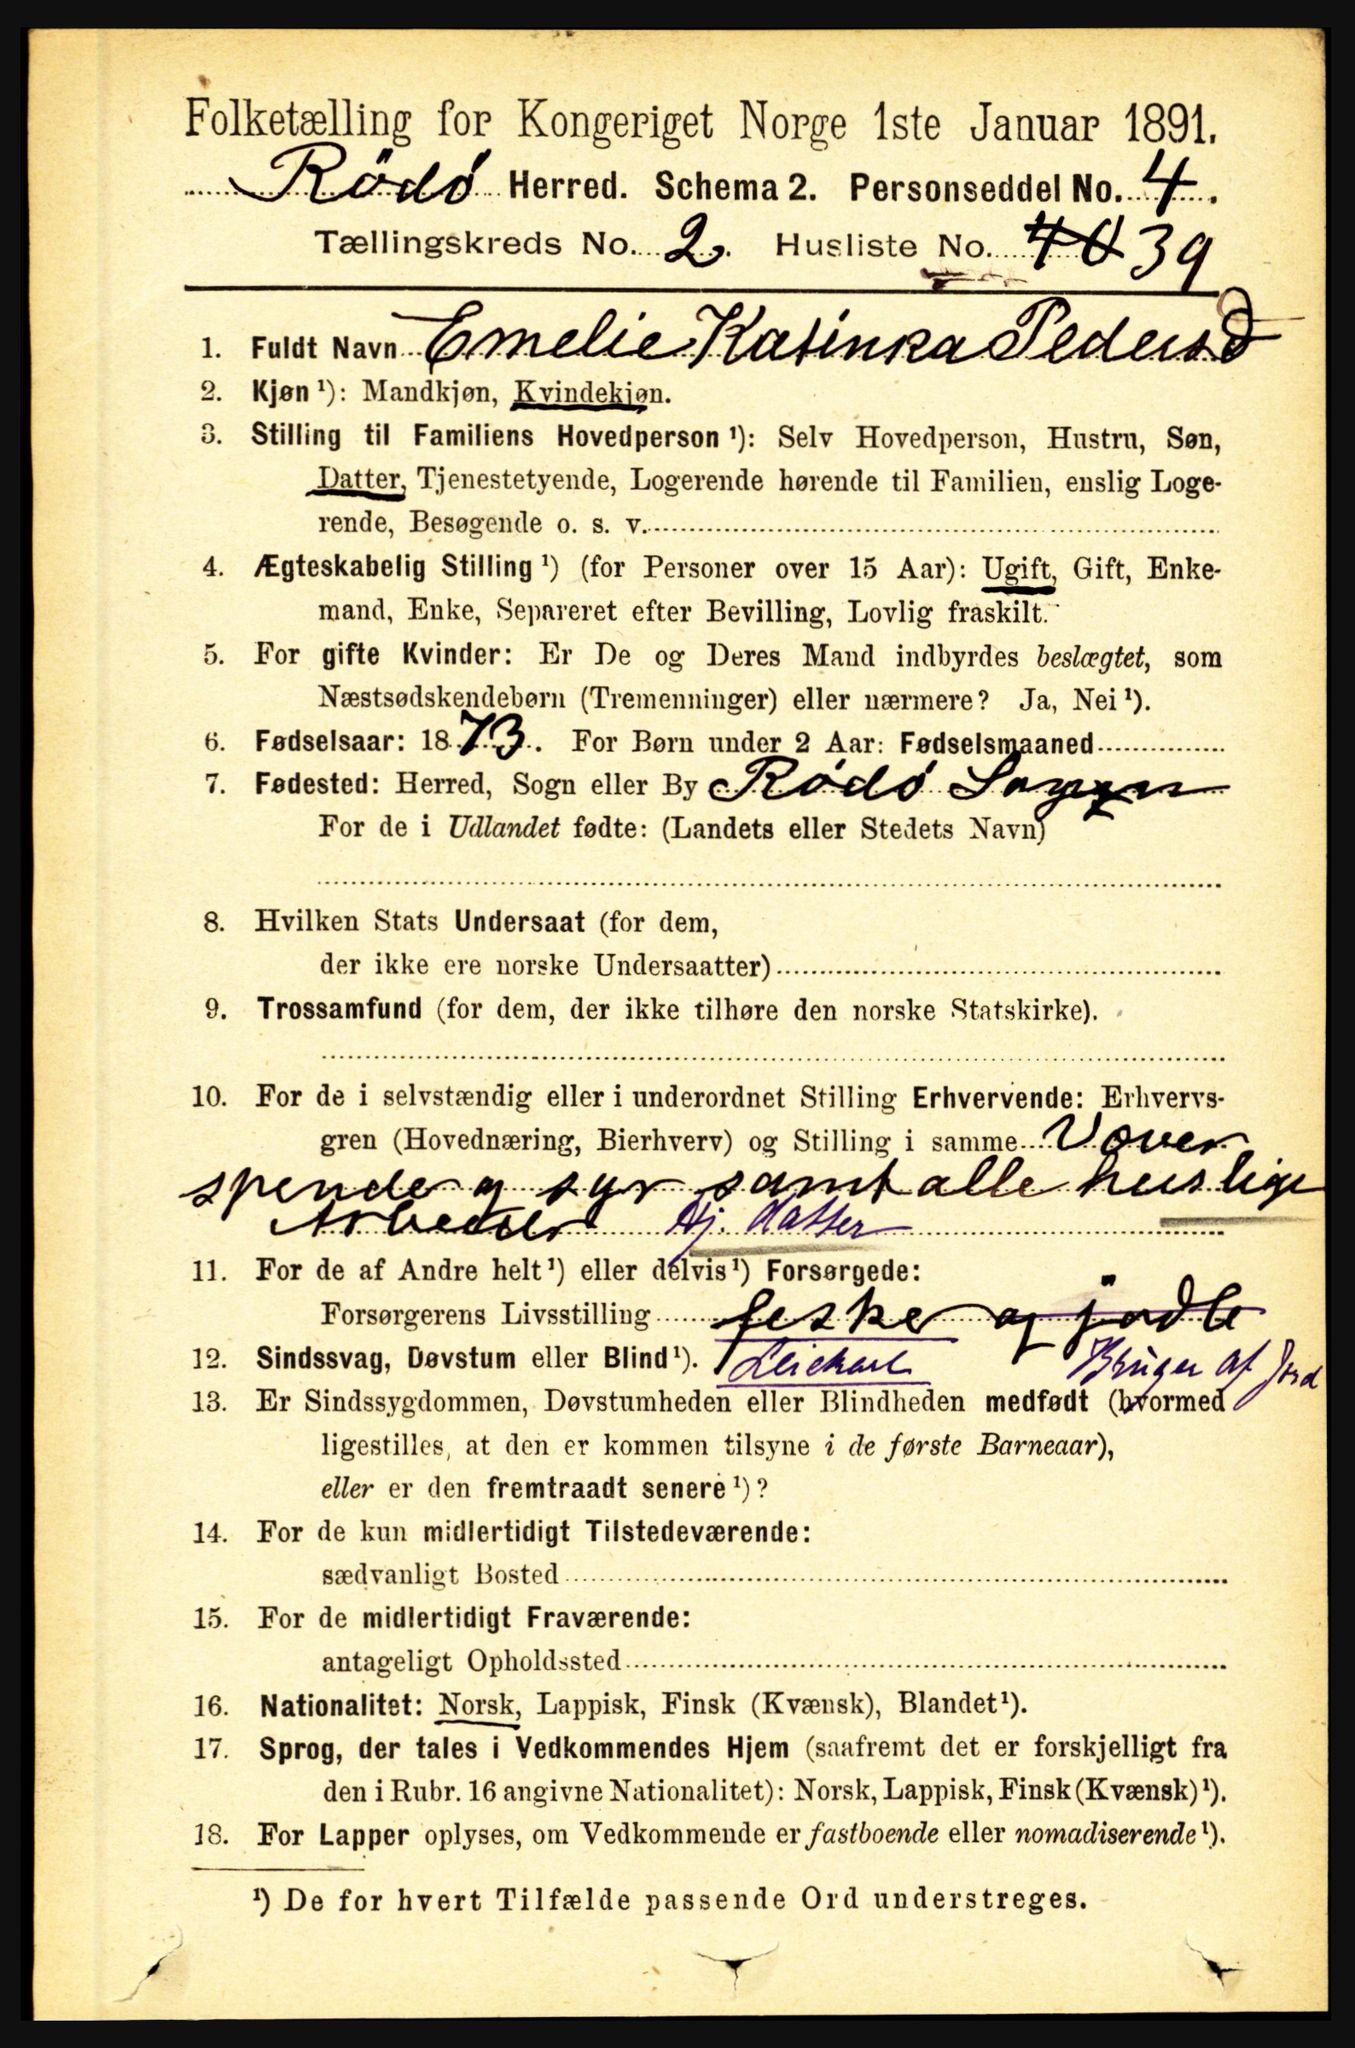 Folketælling for Kongeriget Norge 1ste Januar 1891.
Rödö Herred. Schema 2. Personseddel No. 4.
Tællingskreds No. 2. Husliste No. 40 39
1. Fuldt Navn Emelie Katinka Pedersd
2. Kjøn ¹): Mandkjøn, Kvindekjøn.
3. Stilling til Familiens Hovedperson ¹): Selv Hovedperson, Hustru, Søn,
Datter, Tjenestetyende, Logerende hørende til Familien, enslig Loge-
rende, Besøgende o. s. v.
4. Ægteskabelig Stilling ¹) (for Personer over 15 Aar): Ugift, Gift, Enke-
mand, Enke, Separeret efter Bevilling, Lovlig fraskilt.
5. For gifte Kvinder: Er De og Deres Mand indbyrdes beslægtet, som
Næstsødskendebørn (Tremenninger) eller nærmere? Ja, Nei ¹).
6. Fødselsaar: 1873. For Børn under 2 Aar: Fødselsmaaned
7. Fødested: Herred, Sogn eller By Rödö
For de i Udlandet fødte: (Landets eller Stedets Navn)
8. Hvilken Stats Undersaat (for dem,
der ikke ere norske Undersaatter)
9. Trossamfund (for dem, der ikke tilhøre den norske Statskirke).
10. For de i selvstændig eller i underordnet Stilling Erhvervende: Erhvervs-
gren (Hovednæring, Bierhverv) og Stilling i samme Væver
spender og syr samt alle huslige
Arbeider Hj. Datter
11. For de af Andre helt ¹) eller delvis ¹) Forsørgede:
Forsørgerens Livsstilling fesker og
12. Sindssvag, Døvstum eller Blind ¹). Bruger af Jord
13. Er Sindssygdommen, Døvstumheden eller Blindheden medfødt (hvormed
ligestilles, at den er kommen tilsyne i de første Barneaar),
eller er den fremtraadt senere ¹)?
14. For de kun midlertidigt Tilstedeværende:
sædvanligt Bosted
15. For de midlertidigt Fraværende:
antageligt Opholdssted
16. Nationalitet: Norsk, Lappisk, Finsk (Kvænsk), Blandet ¹).
17. Sprog, der tales i Vedkommendes Hjem (saafremt det er forskjelligt fra
den i Rubr. 16 angivne Nationalitet): Norsk, Lappisk, Finsk (Kvænsk) ¹).
18. For Lapper oplyses, om Vedkommende er fastboende eller nomadiserende ¹).
¹) De for hvert Tilfælde passende Ord understreges.